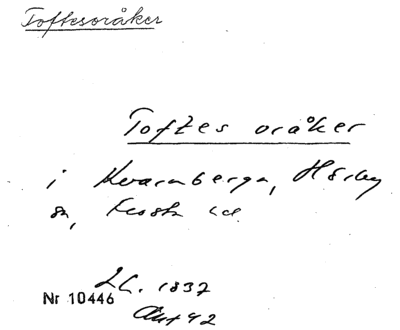 Toftesoråker
Toftes oråker
i Kvarnberga, Hörby
sn, Frosta hd
1837
Nr 10446